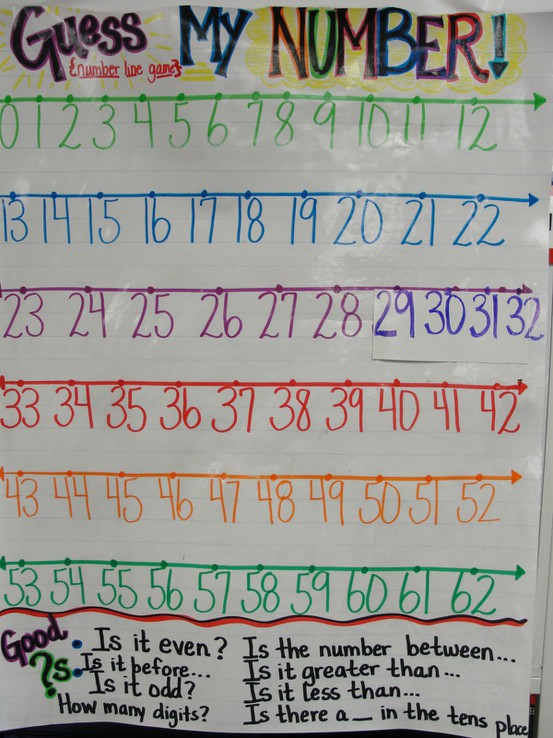 Guess MY NUMBER!
{number line game}
0 1 2 3 4 5 6 7 8 9 10 11 12
13 14 15 16 17 18 19 20 21 22
23 24 25 26 27 28 29 30 31 32
33 34 35 36 37 38 39 40 41 42
43 44 45 46 47 48 49 50 51 52
53 54 55 56 57 58 59 60 61 62
Good ?s.
• Is it even?
• Is it before...
Is it odd?
How many digits?
Is the number between...
Is it greater than...
Is it less than...
Is there a _ in the tens place